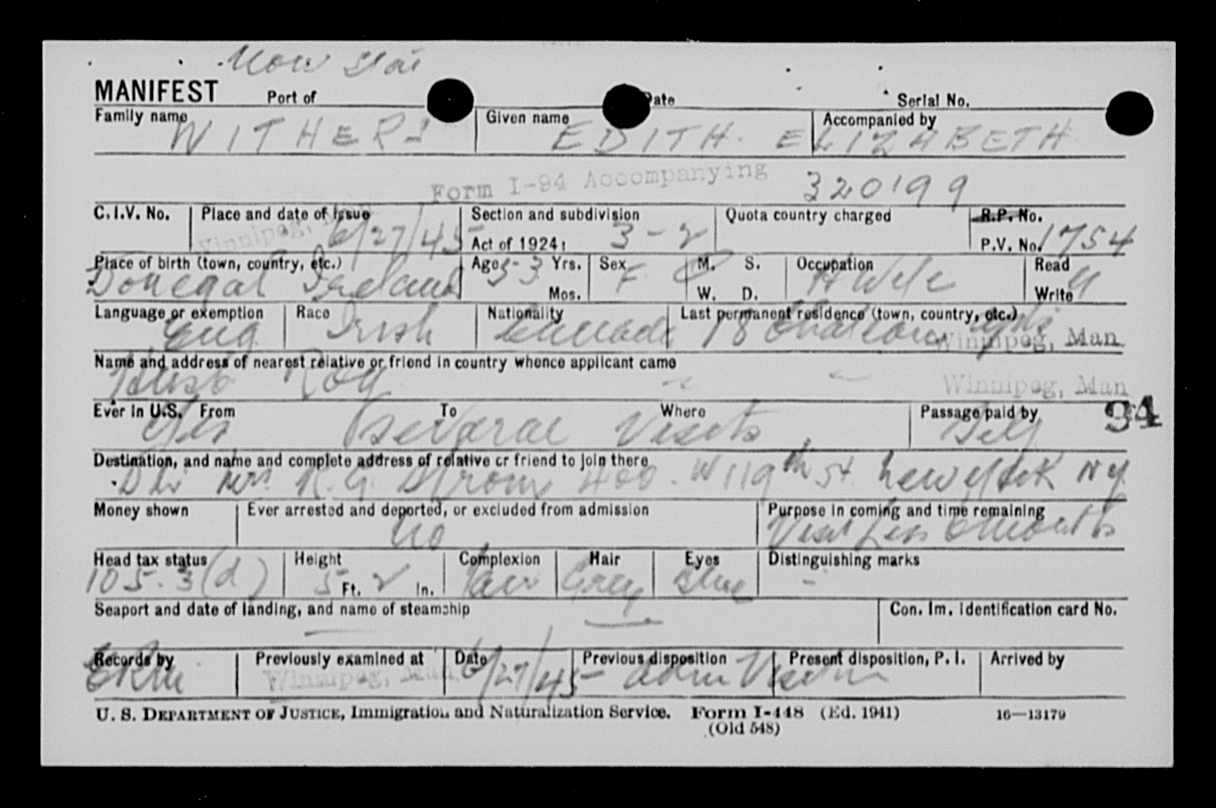 MANIFEST Port of Date Serial No.
Family name Given name Accompanied by
WITHERS EDITH ELIZABETH
Form I-94 Accompanying 320199
C.I.V. No. Place and date of issue Section and subdivision Quota country charged R.P. No.
Winnipeg, 6/27/45 Act of 1924: 3-2 P.V. No. 1754
Place of birth (town, country, etc.) Age 53 Yrs. Sex F M. S. Occupation Read
Donegal Ireland Mos. W. D. HWife Write
Language or exemption Race Nationality Last permanent residence (town, country, etc.)
Eng Irish Canada 18 Winnipeg, Man
Name and address of nearest relative or friend in country whence applicant came
Roy Winnipeg, Man
Ever in U.S. From To Where Passage paid by 94
Yes Several Visits Self
Destination, and name and complete address of relative or friend to join there
Mrs. R. G. Strom 400 W 119th St. New York N.Y.
Money shown Ever arrested and deported, or excluded from admission Purpose in coming and time remaining
No Visit Less 6 Months
Head tax status Height Complexion Hair Eyes Distinguishing marks
105.3(d) 5 Ft. 2 In. Fair Grey Blue -
Seaport and date of landing, and name of steamship Con. Im. Identification card No.
Records by Previously examined at Date Previous disposition Present disposition, P. I. Arrived by
Winnipeg, Man. 6/27/45 adm
U. S. DEPARTMENT OF JUSTICE, Immigration and Naturalization Service. Form I-448 (Ed. 1941) 16—13179
(Old 548)